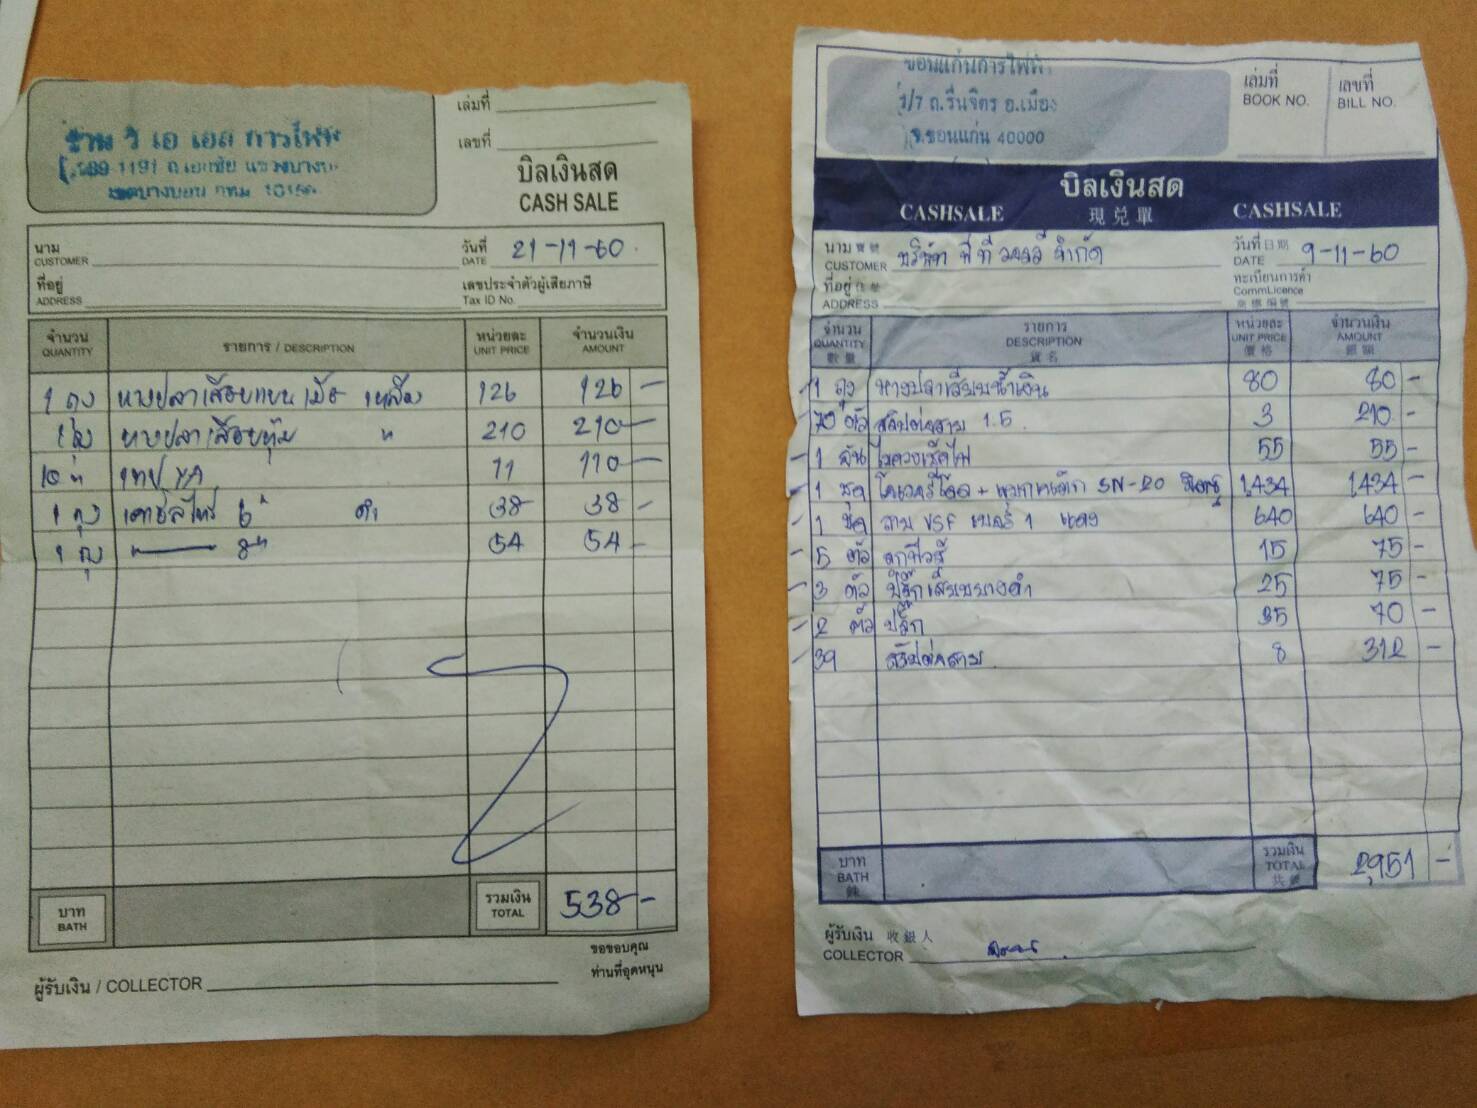 ร้าน วี เอ เอส การไฟฟ้า
เล่มที่
เลขที่
บิลเงินสด
CASH SALE
นาม
CUSTOMER
วันที่
DATE
21-11-60
ที่อยู่
ADDRESS
เลขประจำตัวผู้เสียภาษี
Tax ID No.
จำนวน
QUANTITY
รายการ / DESCRIPTION
หน่วยละ
UNIT PRICE
จำนวนเงิน
AMOUNT
1 ถุง หางปลาเสียบแบน เมีย เหลือง 126 126 -
1 ถุง หางปลาเสียบหุ้ม " 210 210 -
10 ม้วน เทป YA 11 110 -
1 ถุง เคเบิลไทร์ 6" ดำ 38 38 -
1 ถุง 8" 54 54 -
บาท
BATH
รวมเงิน
TOTAL
538 -
ขอขอบคุณ
ท่านที่อุดหนุน
ผู้รับเงิน / COLLECTOR
ขอนแก่นการไฟฟ้า
1/7 ถ.รื่นจิตร อ.เมือง
จ.ขอนแก่น 40000
เล่มที่
BOOK NO.
เลขที่
BILL NO.
บิลเงินสด
CASHSALE 現兌單 CASHSALE
นาม 寶號
CUSTOMER
บริษัท พี ที จำกัด
วันที่ 日期
DATE
9-11-60
ที่อยู่ 住址
ADDRESS
ทะเบียนการค้า
CommLicence
商標編號
จำนวน
QUANTITY
數量
รายการ
DESCRIPTION
貨名
หน่วยละ
UNIT PRICE
價格
จำนวนเงิน
AMOUNT
銀額
1 ถุง หางปลาเสียบน้ำเงิน 80 80 -
70 ตัว สลิปต่อสาย 1.5 3 210 -
1 อัน ไขควงเช็คไฟ 55 55 -
1 ชุด SN-20 1,434 1,434 -
1 ชุด สาย VSF เบอร์ 1 แดง 640 640 -
5 ตัว 15 75 -
3 ตัว ปลั๊กเสียบยางดำ 25 75 -
2 ตัว ปลั๊ก 35 70 -
39 สลิปต่อสาย 8 312 -
บาท
BATH
銖
รวมเงิน
TOTAL
共銀
2,951 -
ผู้รับเงิน 收銀人
COLLECTOR